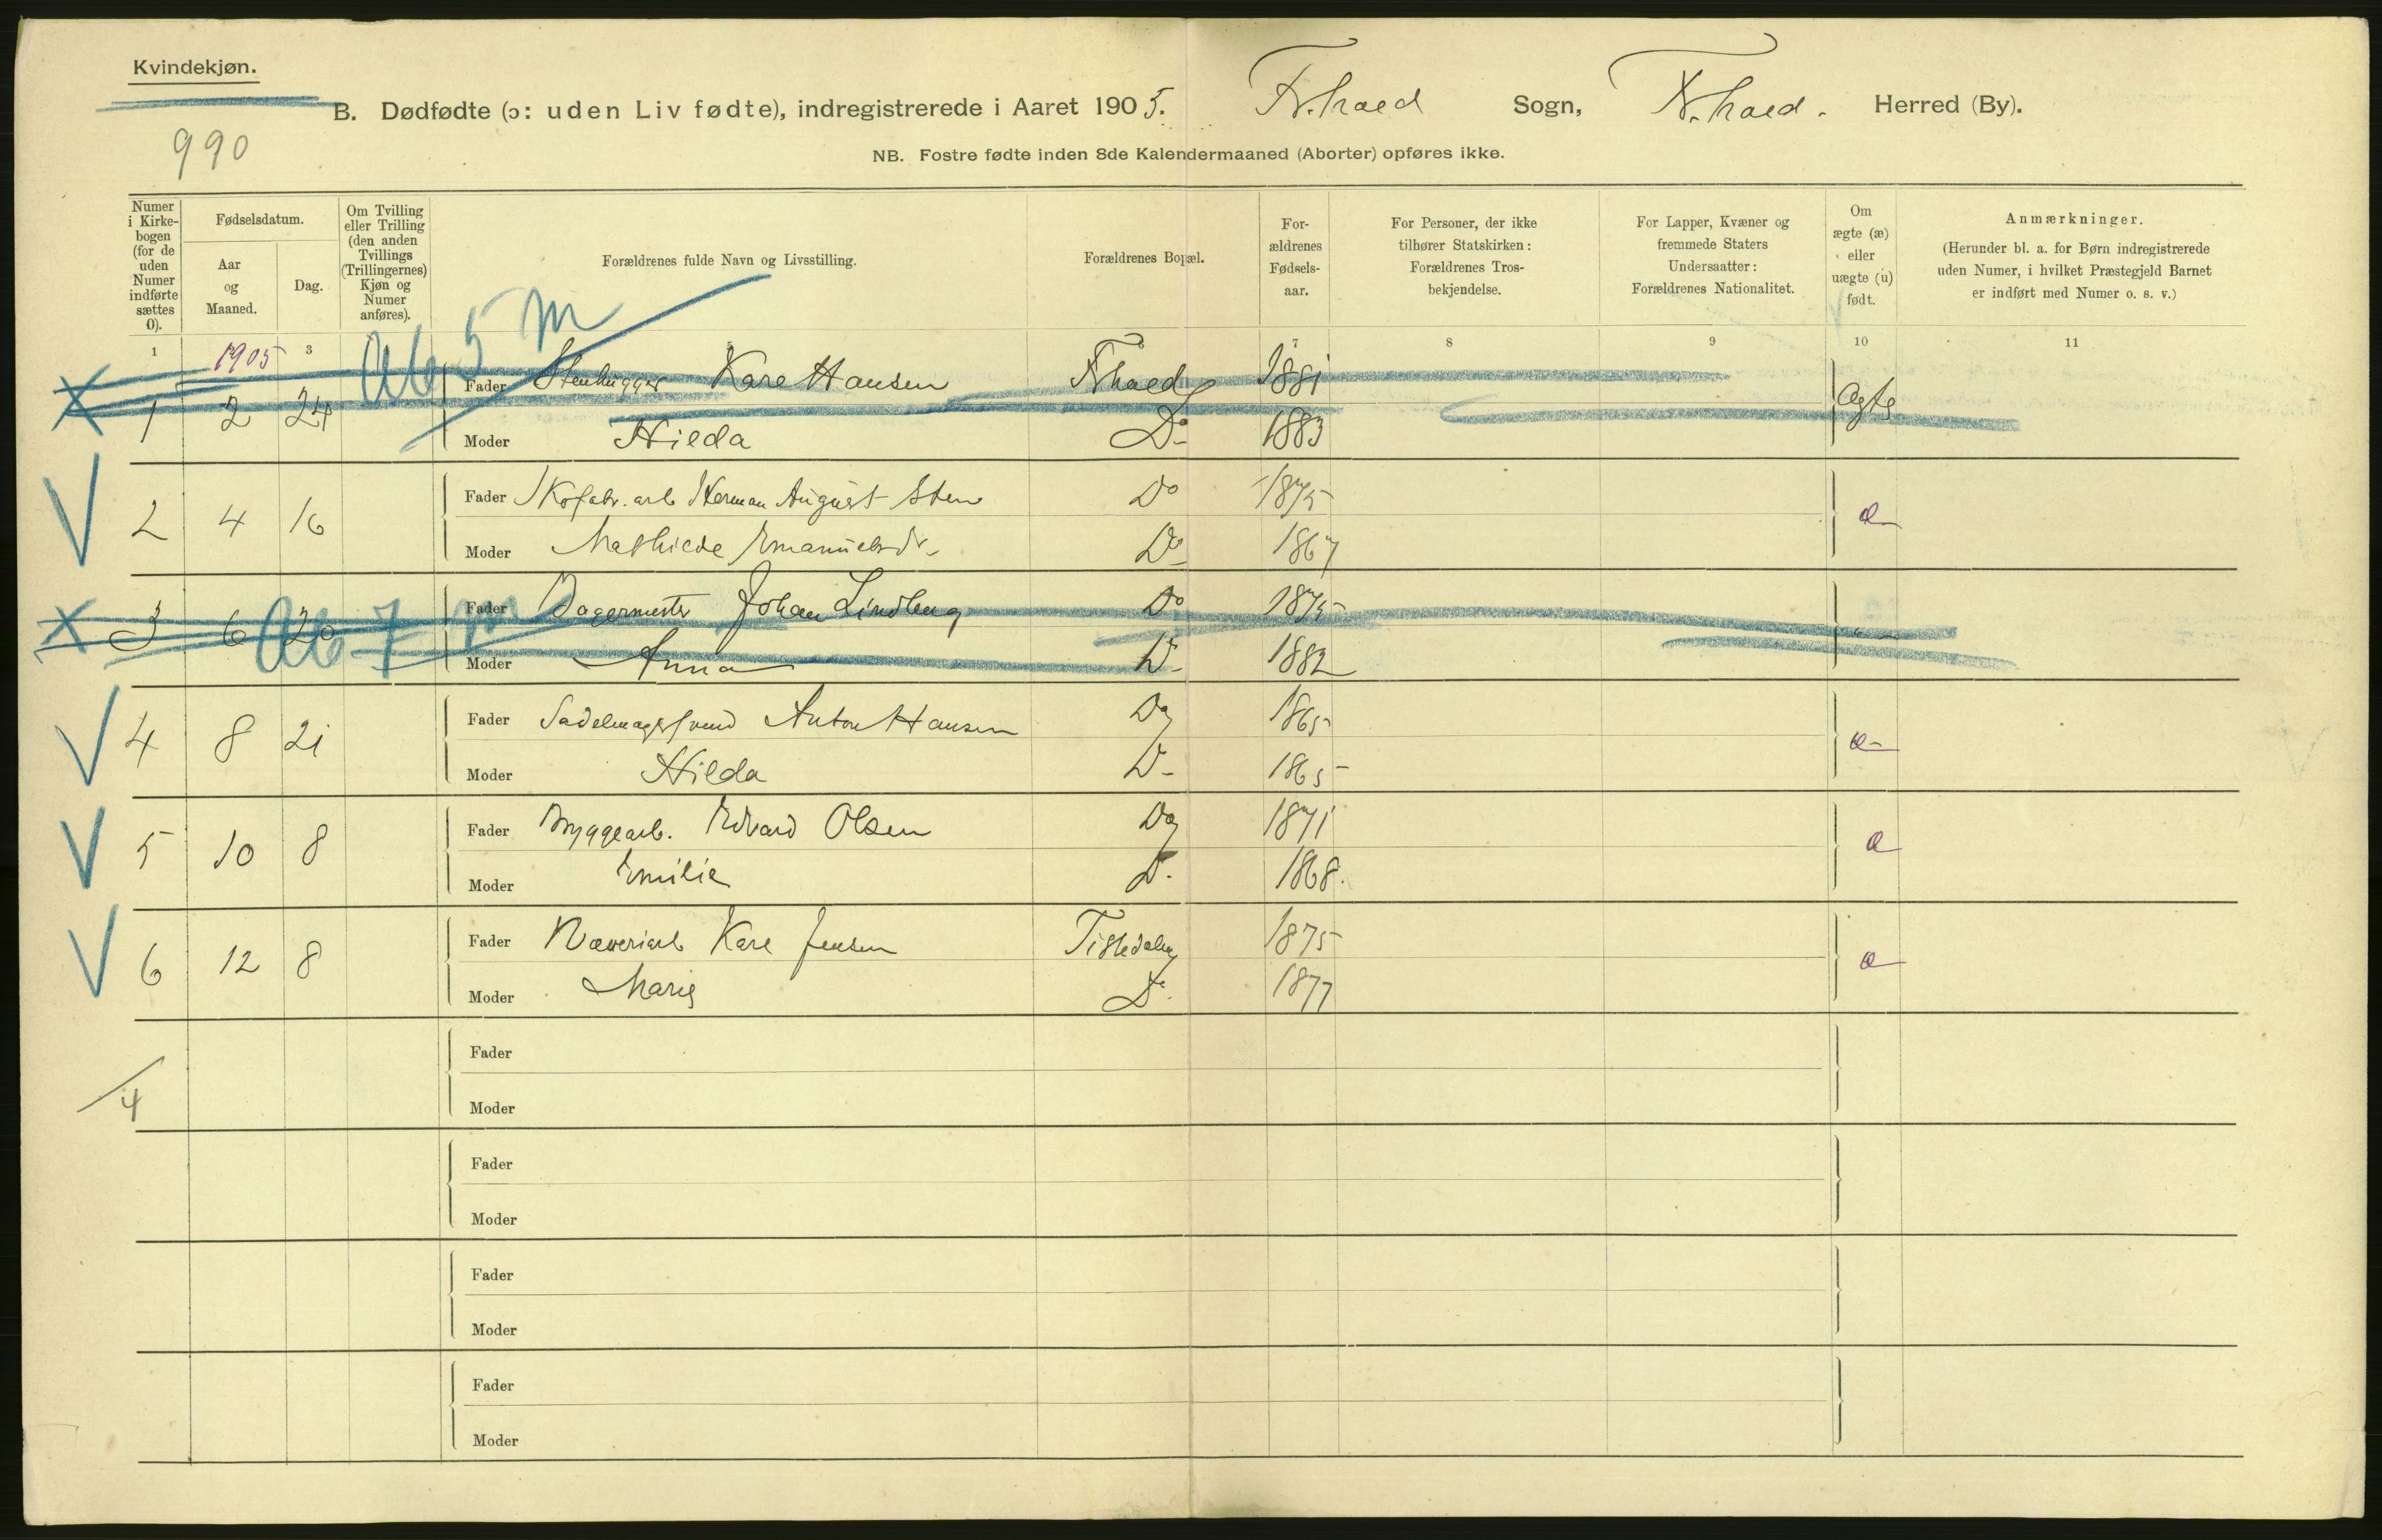 Kvindekjøn.
B. Dødfødte (ɔ: uden Liv fødte), indregistrerede i Aaret 1905. Fr.hald Sogn, Fr.hald. Herred (By).
990
NB. Fostre fødte inden 8de Kalendermaaned (Aborter) opføres ikke.
Numer i Kirkebogen (for de uden Numer indførte sættes 0).
Fødselsdatum.
Aar og Maaned.
Dag.
Om Tvilling eller Trilling (den anden Tvillings (Trillingernes) Kjøn og Numer anføres).
Forældrenes fulde Navn og Livsstilling.
Forældrenes Bopæl.
For-ældrenes Fødsels-aar.
For Personer, der ikke tilhører Statskirken: Forældrenes Tros-bekjendelse.
For Lapper, Kvæner og fremmede Staters Undersaatter: Forældrenes Nationalitet.
Om ægte (æ) eller uægte (u) født.
Anmærkninger.
(Herunder bl. a. for Børn indregistrerede uden Numer, i hvilket Præstegjeld Barnet er indført med Numer o. s. v.)
1 3 7 8 9 10 11
1905
Ab 5 m
1 2 24 Fader Stenhugger Karl Hansen Fr.hald 1881 Ægte
Moder Hilda Do 1883
2 4 16 Fader Skofabr. arb Herman August Sten Do 1875 æ
Moder Mathilde Emanuelsdr. Do 1867
Ab 7 m
3 6 20 Fader Bagermester Johan Lindberg Do 1875
Moder Anna Do 1882
4 8 21 Fader Sadelmagersvend Anton Hansen Do 1865 æ
Moder Hilda Do 1865
5 10 8 Fader Bryggearb. Edvard Olsen Do 1871 æ
Moder Emilie Do 1868.
6 12 8 Fader Væveriarb Karl Jensen Tistedalen 1875 æ
Moder Marie Do 1877
Fader
4
Moder
Fader
Moder
Fader
Moder
Fader
Moder